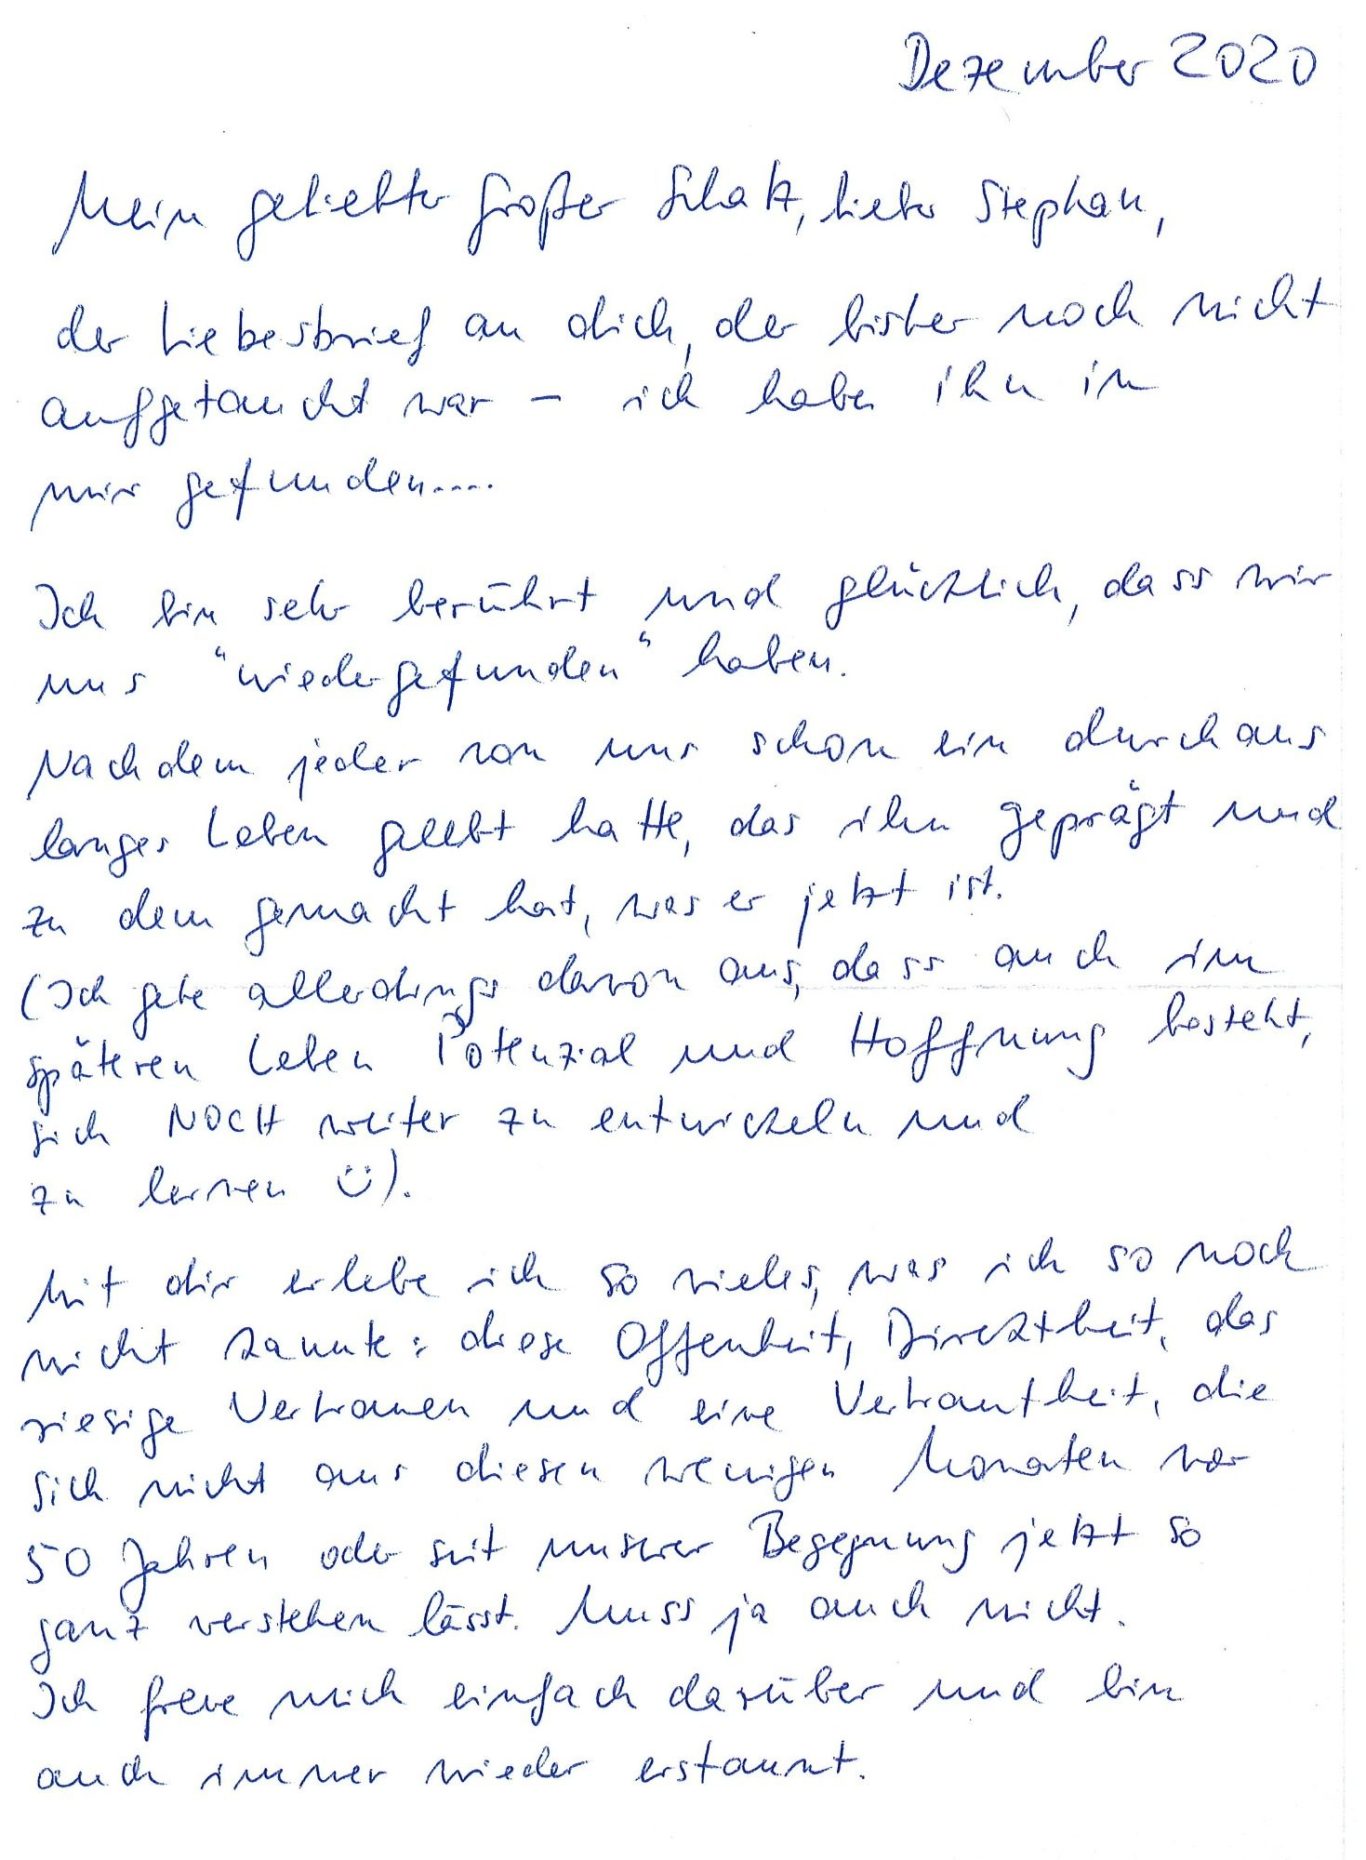 Dezember 2020
Mein geliebter Großer Schatz, lieber Stephan,
der Liebesbrief an dich, der bisher noch nicht
aufgetaucht war – ich habe ihn in
mir gefunden....
Ich bin sehr berührt und glücklich, dass wir
uns "wiedergefunden" haben.
Nachdem jeder von uns schon ein durchaus
langes Leben gelebt hatte, das ihn geprägt und
zu dem gemacht hat, was er jetzt ist.
(Ich gehe allerdings davon aus, dass auch im
späteren Leben Potenzial und Hoffnung besteht,
sich NOCH weiter zu entwickeln und
zu lernen ü).
Mit dir erlebe ich so vieles, was ich so noch
nicht kannte: diese Offenheit, Direktheit, das
riesige Vertrauen und eine Vertrautheit, die
sich nicht aus diesen wenigen Monaten vor
50 Jahren oder seit unserer Begegnung jetzt so
ganz verstehen lässt. Muss ja auch nicht.
Ich freue mich einfach darüber und bin
auch immer wieder erstaunt.